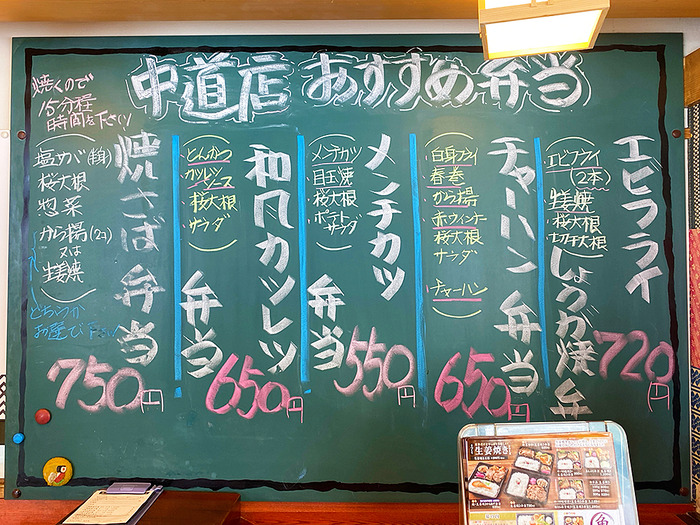 中道店 おすすめ弁当
エビフライ
しょうが焼弁
720
・エビフライ
(2本)
・生姜焼
・桜大根
・切干大根
チャーハン弁当
650円
・白身フライ
・春巻
・から揚
・赤ウィンナー
・桜大根
・サラダ
・チャーハン
メンチカツ
弁当
550円
・メンチカツ
・目玉焼
・桜大根
・ポテト
サラダ
和風カツレツ
弁当
650円
・とんかつ
・カツレツ
ソース
・桜大根
・サラダ
焼さば弁当
750円
焼くので
15分程
時間を下さい
桜大根
惣菜
から揚(2コ)
又は
生姜焼
どちらか
お選び下さい
生姜焼き